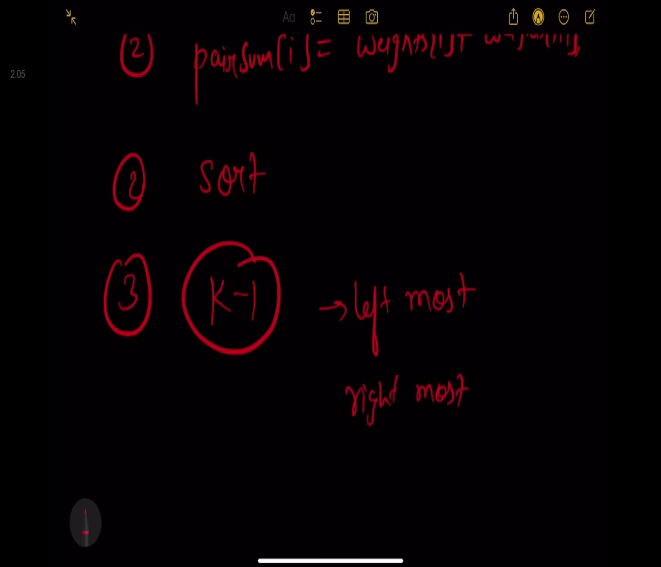 2.05
Aa
(2) pairSum[i] = weights[i]+
(2) Sort
(3) K-1 → left most
right most